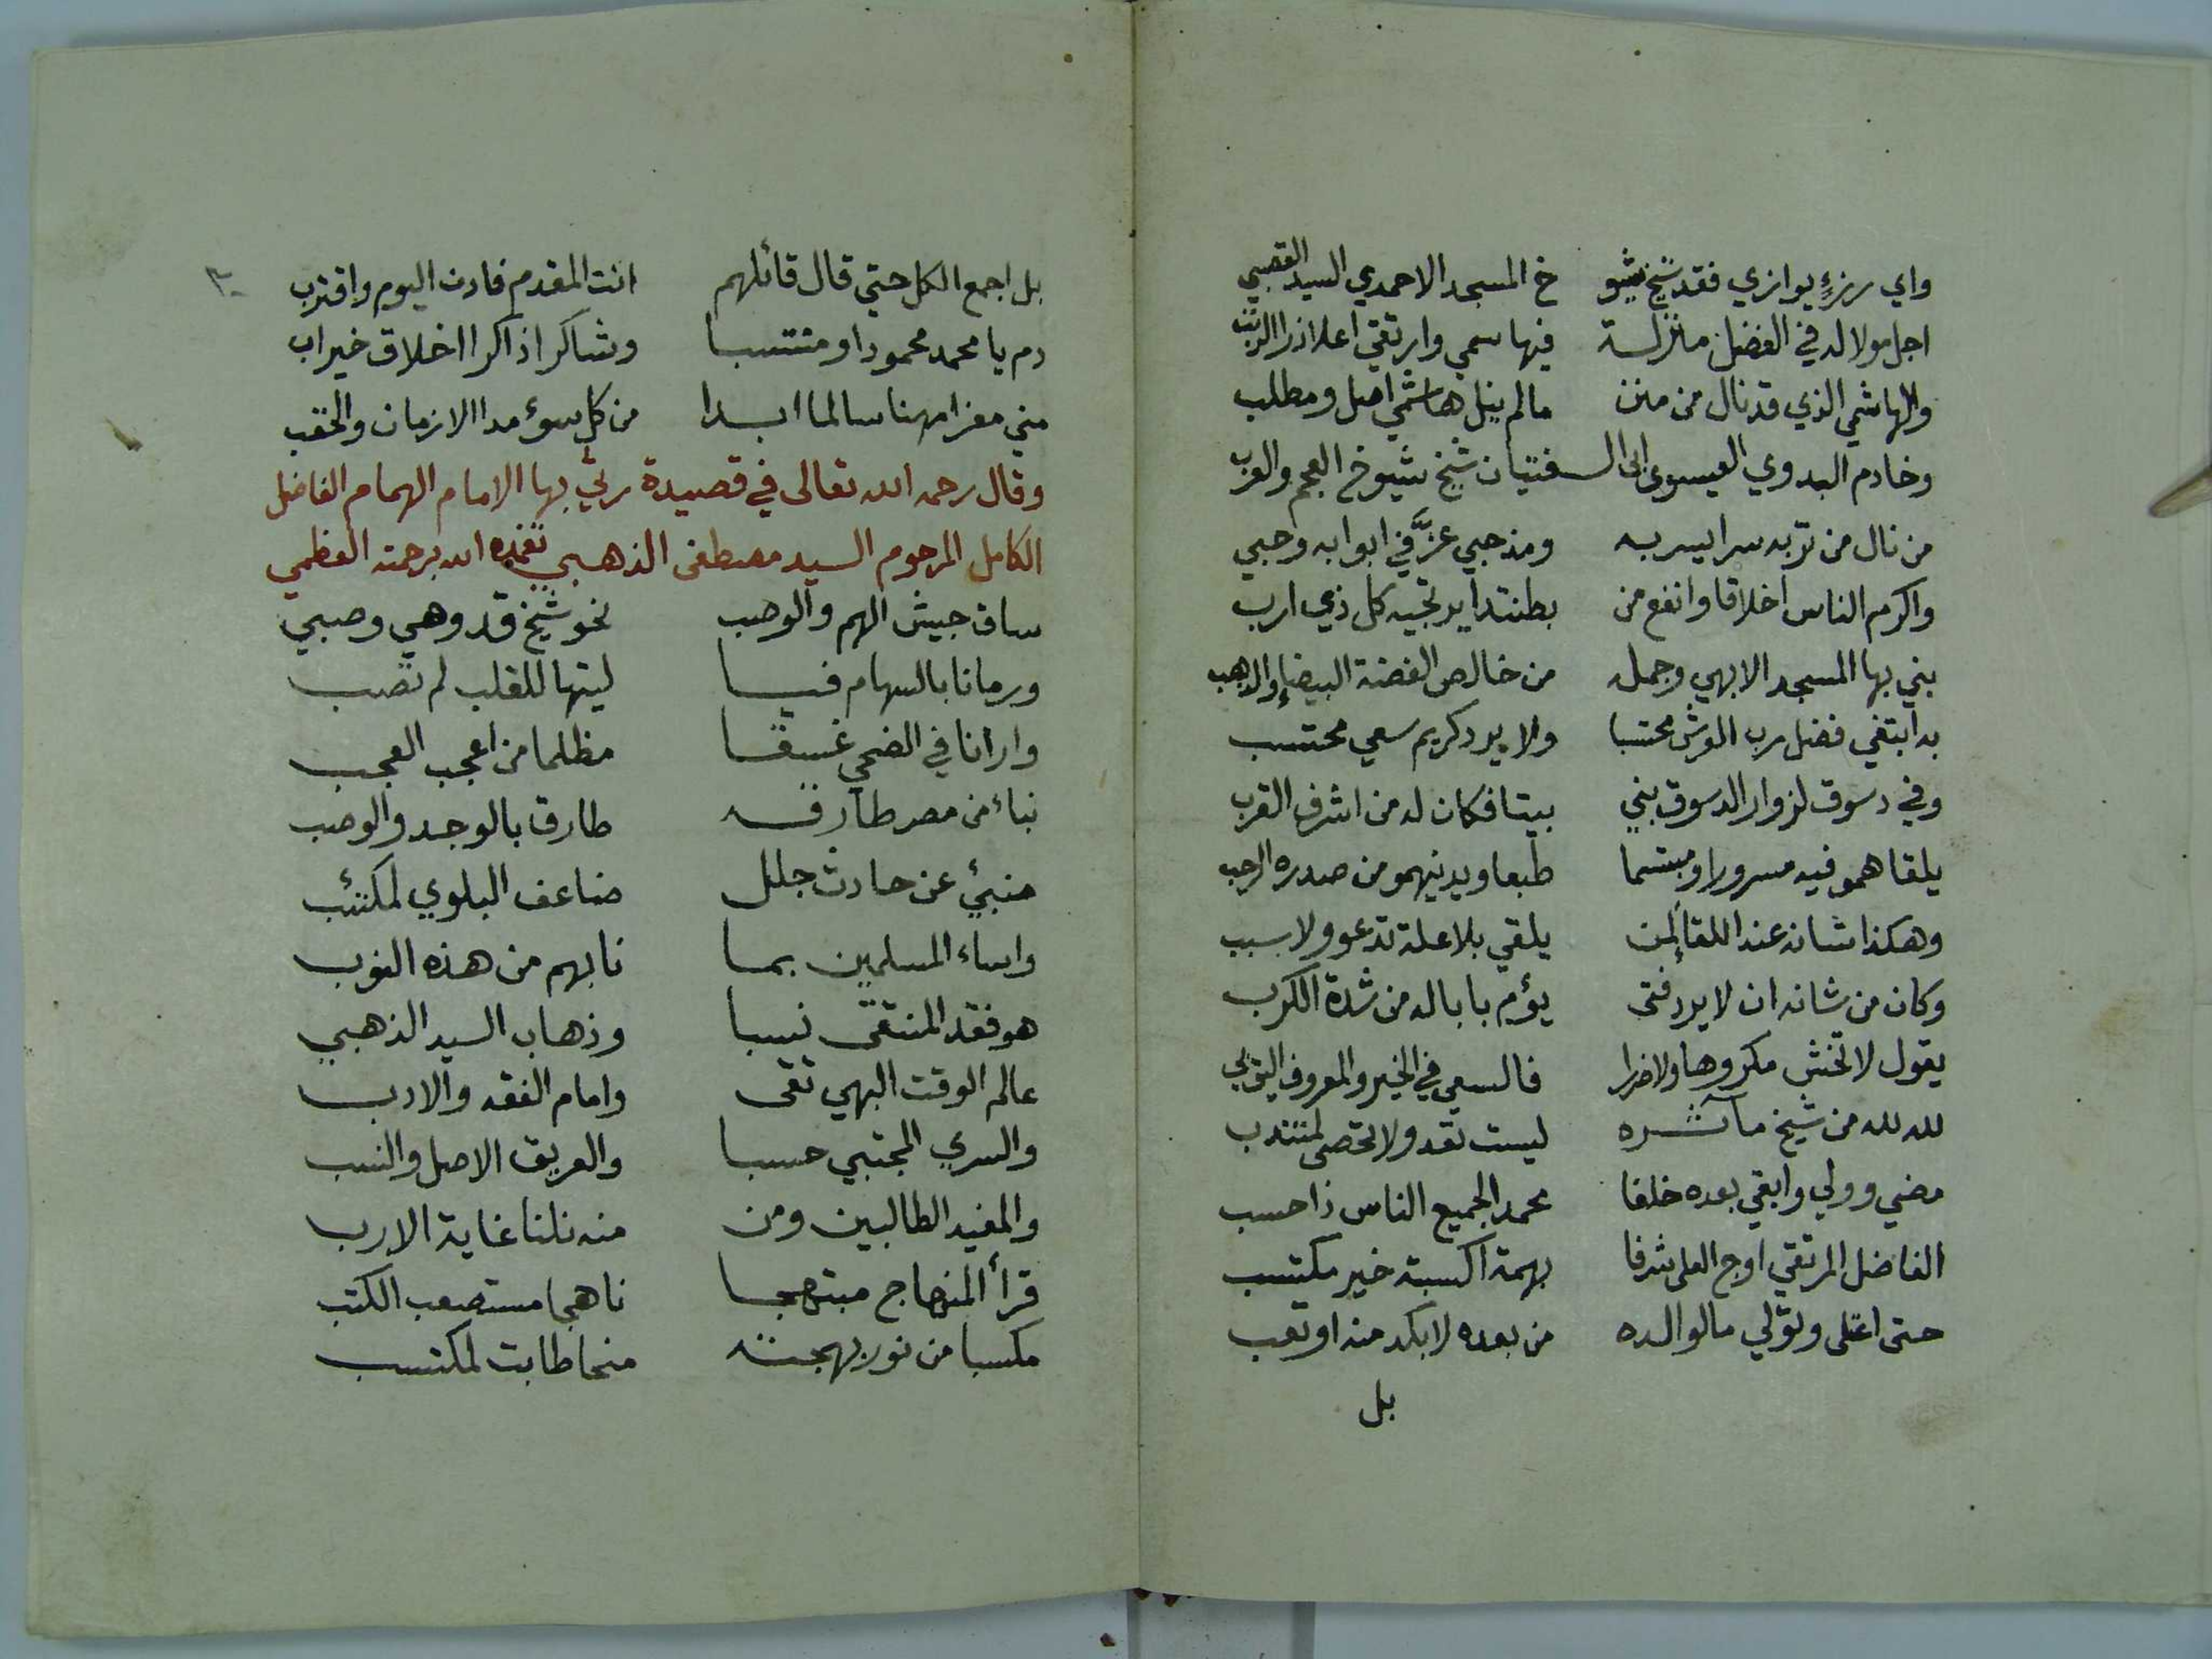 واي رزءٍ يوازي فقد شيخ شيو خ المسجد الاحمدي السيد القصبي
اجل مولا له في الفضل منزلة فيها سمي وارتقي اعلا ذرا الرتب
والهاشمي الذي قد نال من منن مالم ينل هاشمي اصل ومطلب
وخادم البدوي العيسوي ابي الـ ـفتيان شيخ شيوخ العجم والعرب
من نال من تربه سرا يسر به ومذ حبي عزَّ في ابوابه وحبي
واكرم الناس اخلاقا وانفع من بطنتدا يرتجيه كل ذي ارب
بني بها المسجد الابهي وجمله من خالص الفضة البيضاء والذهب
به ابتغي فضل رب العرش محتسبا ولا يرد كريم سعي محتسب
وفي دسوق لزوار الدسوق بني بيتا فكان له من اشرف القرب
يلقاهمو فيه مسرورا ومبتسما طبعا ويدنيهمو من صدره الرحب
وهكذا شانه عند اللقا لمن يلقي بلا علة تدعو ولا سبب
وكان من شانه ان لا يرد فتى يؤم بابا له من شدة الكرب
يقول لا تخش مكروها ولا ضررا فالسعي في الخير والمعروف اليق بي
لله لله من شيخ مآثـــره ليست تعد ولا تحصى لمنتدب
مضي وولي وابقي بعده خلفا محمدا لجميع الناس ذا حسب
الفاضل المرتقي اوج العلى شرفا بهمة اكسبته خير مكتسب
حتى اعتلى وتولي ما لوالده من بعده لا بكد منه او تعب
بل
٣٠
بل اجمع الكل حتي قال قائلهم انت المقدم فادن اليوم واقترب
دم يا محمد محمودا ومنتسبا وشاكرا ذاكرا اخلاق خير اب
مني معزا مهنا سالما ابدا من كل سوء مدا الازمان والحقب
وقال رحمه الله تعالى في قصيدة رثي بها الامام الهمام الفاضل
الكامل المرحوم السيد مصطفى الذهبي تغمده الله برحمته العظمي
ساق جيش الهم والوصب نحو شيخ قد وهي وصبي
ورمانا بالسهام فيا ليتها للقلب لم تصب
وارانا في الضحي غسقا مظلما من اعجب العجب
نباء من مصر طارقه طارق بالوجد والوصب
منبئ عن حادث جلل ضاعف البلوي لمكتئب
واساء المسلمين بما نابهم من هذه النوب
هو فقد المنتقى نسبا وذهاب السيد الذهبي
عالم الوقت البهي تقى وامام الفقه والادب
والسري المجتبي حسبا والعريق الاصل والنسب
والمفيد الطالبين ومن منه نلنا غاية الارب
قرأ المنهاج مبتهجا ناهجا مستصعب الكتب
مكسبا من نور بهجته منحا طابت لمكتسب